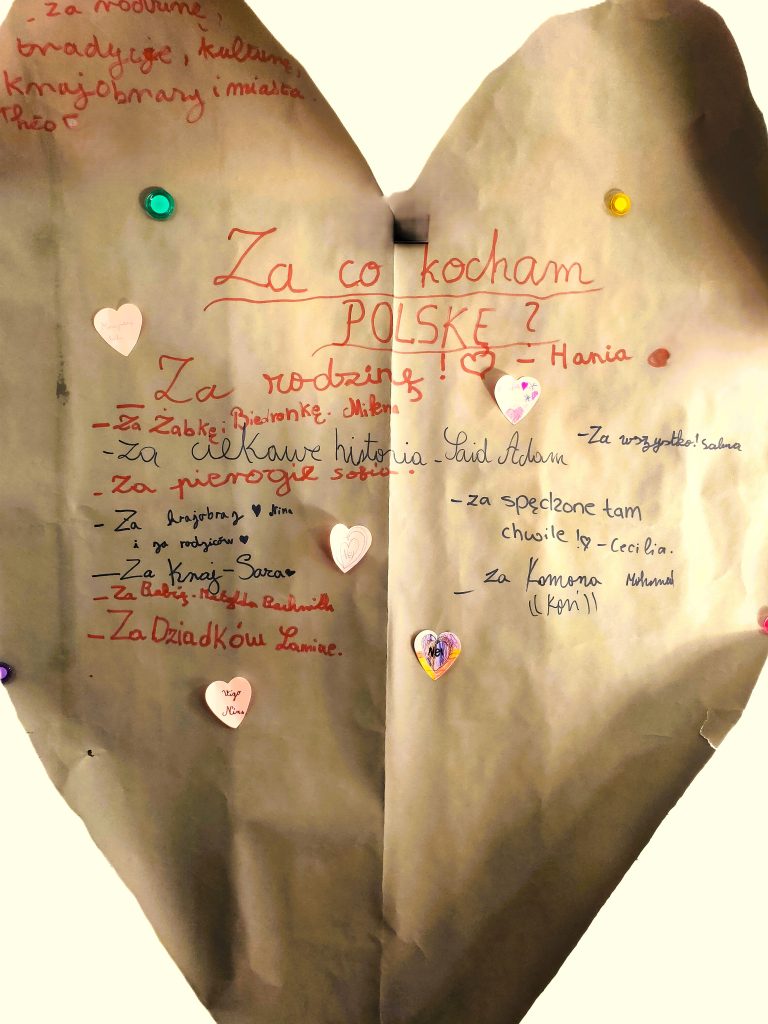 - za rodzinę,
tradycje, kulturę,
knajobrazy i miasta.
Théo
Za co kocham
POLSKĘ ?
- Za rodzinę ! ♡ - Hania
- Za Żabkę i Biedronkę. Milena
- za ciekawe historia - Said Adam
- Za wszystko! Salma
- Za pierogie sobia !
- Za krajobrazy ♥ Nina
i za rodziców ♥
- za spędzone tam
chwile ! ♡ - Cecilia.
- Za Knaj - Sara ♥
- za Komona Mohamed
((Koń))
- Za Babcię - Matylda
- Za Dziadków Lamine.
NEL
Nina